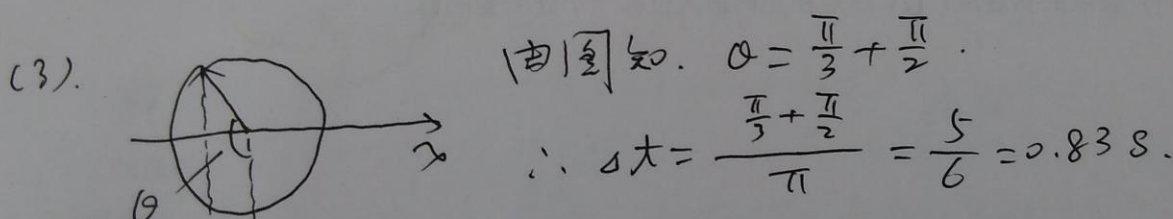 (3). 由图知. θ = π/3 + π/2 .
x
θ
∴ Δt = (π/3 + π/2)/π = 5/6 = 0.83 s.